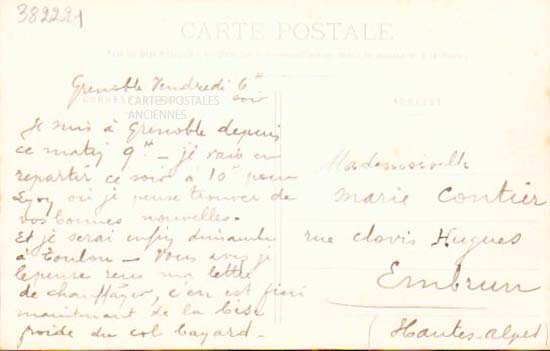 382221
CARTE POSTALE
Grenoble Vendredi 6h
soir
CARTES POSTALES
ANCIENNES
ADRESSE
Je suis à Grenoble depuis
ce matin 9h - je vais en
repartir ce soir à 10h pour
Lyon où je pense trouver de
vos bonnes nouvelles.
Et je serai enfin dimanche
à Toulon - Vous avez je
pense reçu ma lettre
de c'en est fini
maintenant de la bise
froide du col bayard -
Mademoiselle
Marie Contier
rue clovis Hugues
Embrun
(Hautes-Alpes)